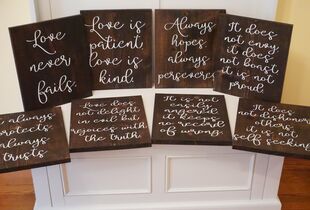 Love
never
fails.
Love is
patient
love is
kind.
Always
hopes
always
perseveres
It does
not envy
it does
not boast
it is not
proud.
always
protects
always
trusts.
Love does
not delight
in evil but
rejoices with
the truth.
It is not
easily
angered it
keeps no
record of
wrong.
It does
not dishonor
others,
it is not
self seeking